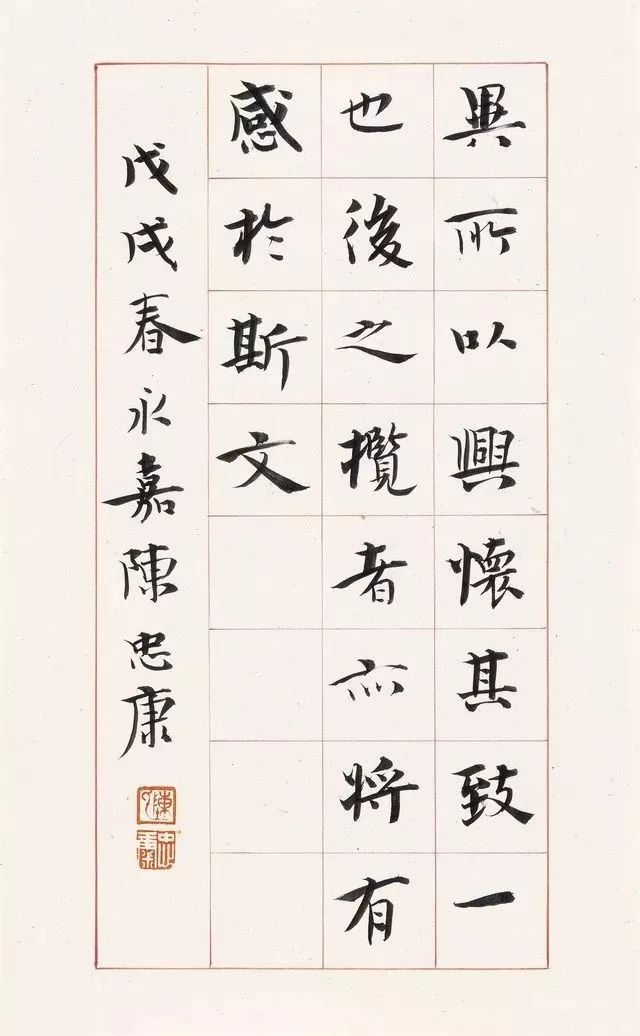 異所以興懷其致一
也後之攬者亦將有
感於斯文
戊戌春永嘉陳忠康